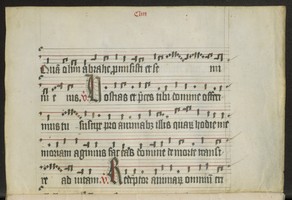 Quā olim abrahe promisisti et se mi
ni e ius. V. Hostias et p̄ces tibi domine offeri
mus tu suscipe pro animabȝ illis quarȝ hodie me
moriam agimus fac eas domine de morte transi
re ad vitam. V. Redemptor animarȝ omniū